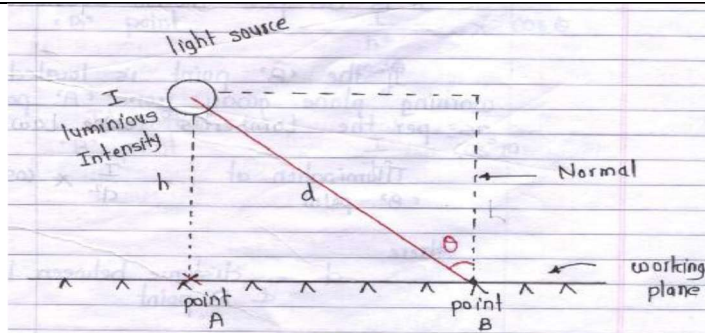 light source
I
luminious
Intensity
h
d
θ
Normal
working
plane
point
A
point
B